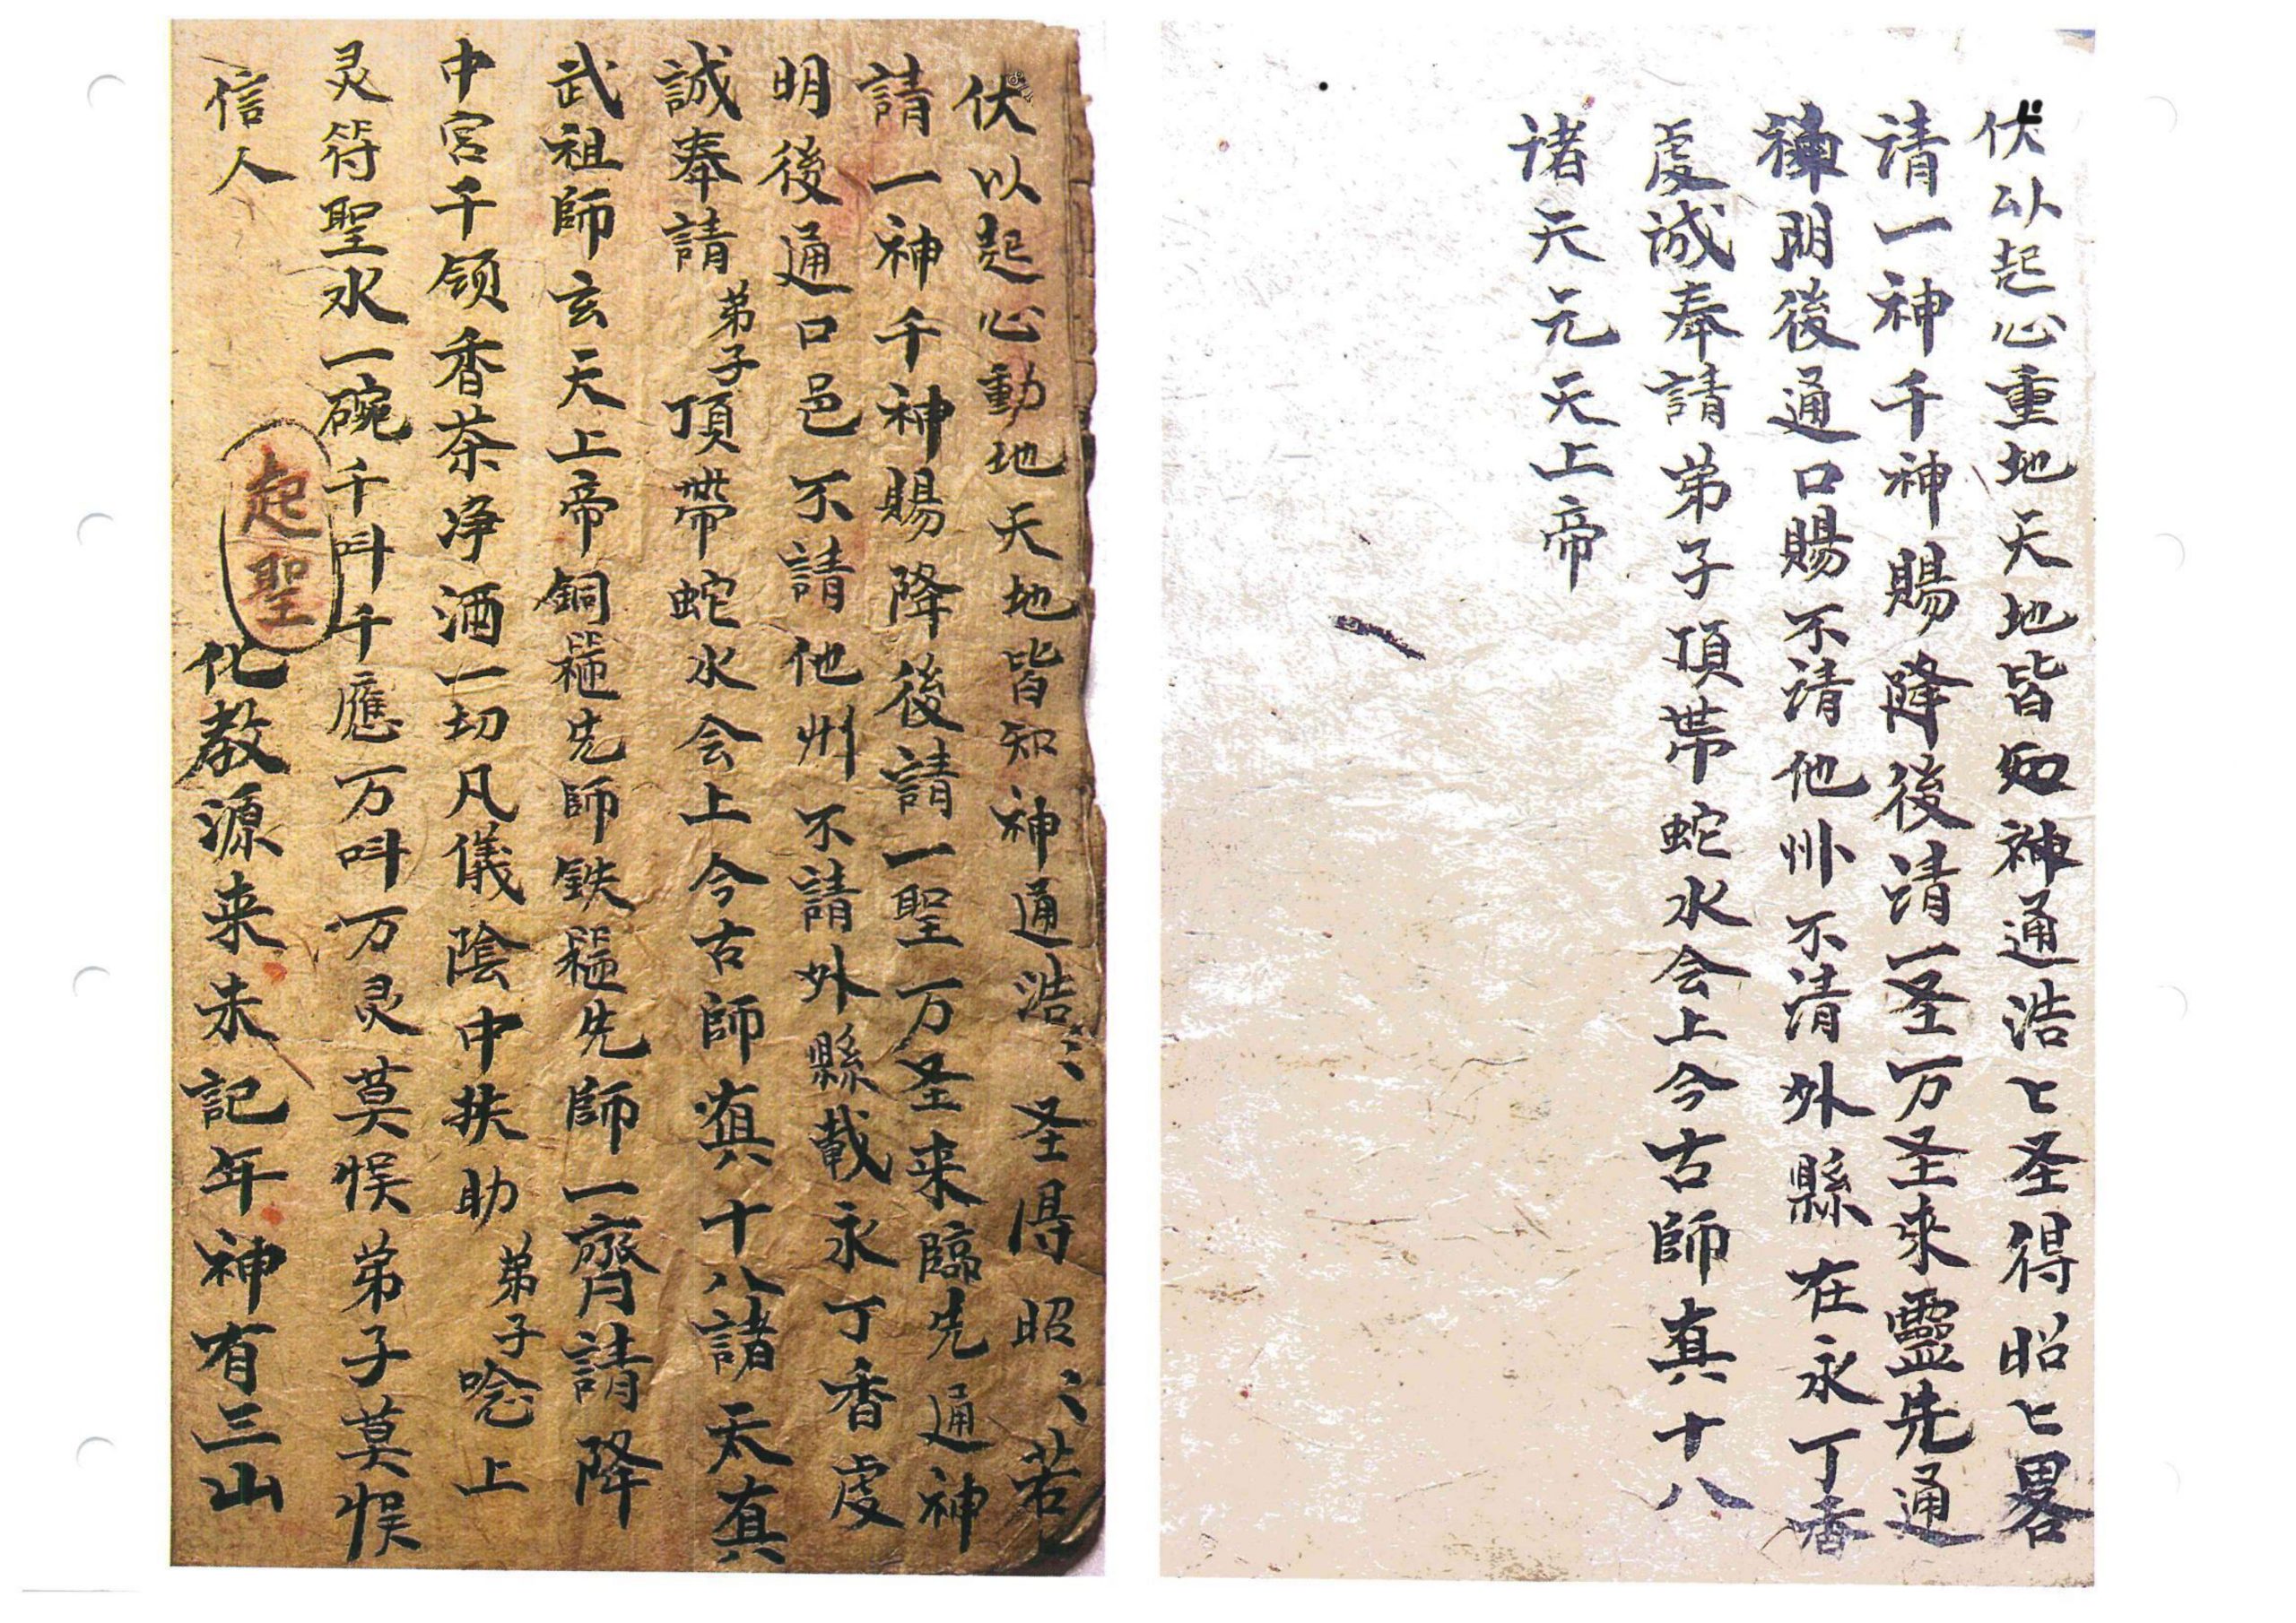 伏以起心重地天地皆知神通浩〻圣得昭〻畧
请一神千神賜降後请一圣万圣來靈先通
神明後通口賜不请他州不请外縣在永丁香
虔诚奉請弟子頂带蛇水会上今古師真十八
诸天元天上帝
伏以起心動地天地皆知神通浩〻圣得昭〻若
請一神千神賜降後請一聖万圣来臨先通神
明後通口邑不請他州不請外縣載永丁香虔
誠奉請弟子頂帶蛇水会上今古師真十八諸天真
武祖師玄天上帝銅先師鉄先師一齊請降
中宫千领香茶净酒一切凡儀陰中扶助弟子唸上
灵符聖水一碗千叫千應万叫万灵莫悮弟子莫悮
信人
起聖
化教源来未記年神有三山